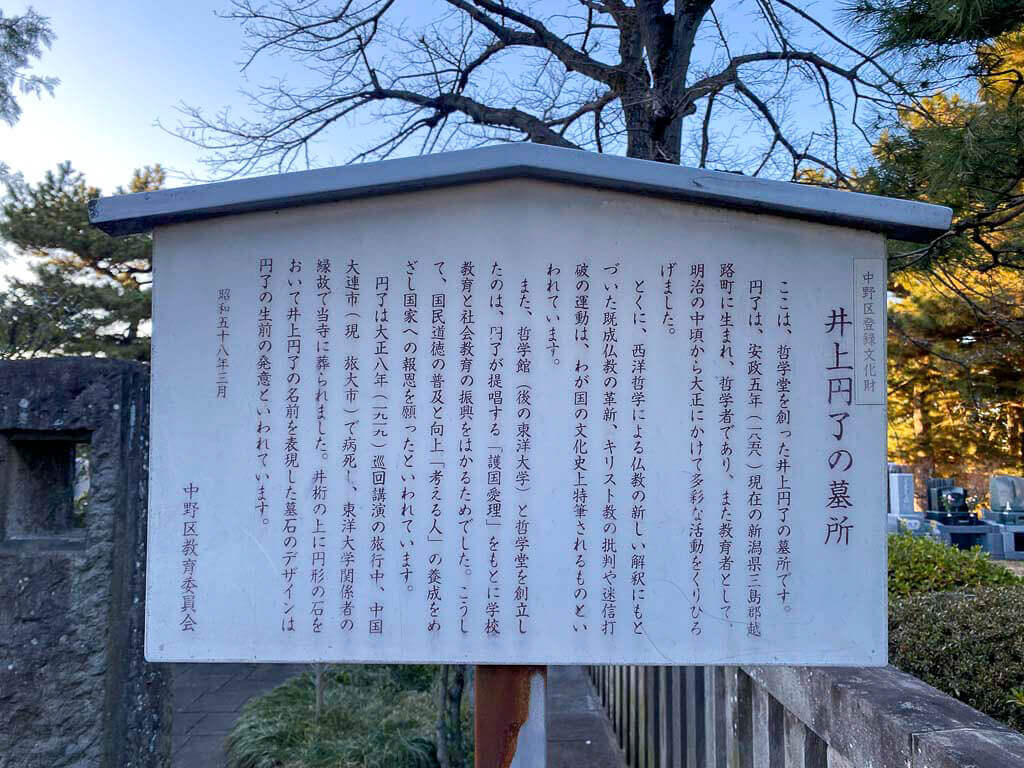 中野区登録文化財
井上円了の墓所
ここは、哲学堂を創った井上円了の墓所です。
円了は、安政五年（一八五八）現在の新潟県三島郡越
路町に生まれ、哲学者であり、また教育者として
明治の中頃から大正にかけて多彩な活動をくりひろ
げました。
とくに、西洋哲学による仏教の新しい解釈にもと
づいた既成仏教の革新、キリスト教の批判や迷信打
破の運動は、わが国の文化史上特筆されるものとい
われています。
また、哲学館（後の東洋大学）と哲学堂を創立し
たのは、円了が提唱する「護国愛理」をもとに学校
教育と社会教育の振興をはかるためでした。こうし
て、国民道徳の普及と向上「考える人」の養成をめ
ざし国家への報恩を願ったといわれています。
円了は大正八年（一九一九）巡回講演の旅行中、中国
大連市（現　旅大市）で病死し、東洋大学関係者の
縁故で当寺に葬られました。井桁の上に円形の石を
おいて井上円了の名前を表現した墓石のデザインは
円了の生前の発意といわれています。
昭和五十八年三月
中野区教育委員会